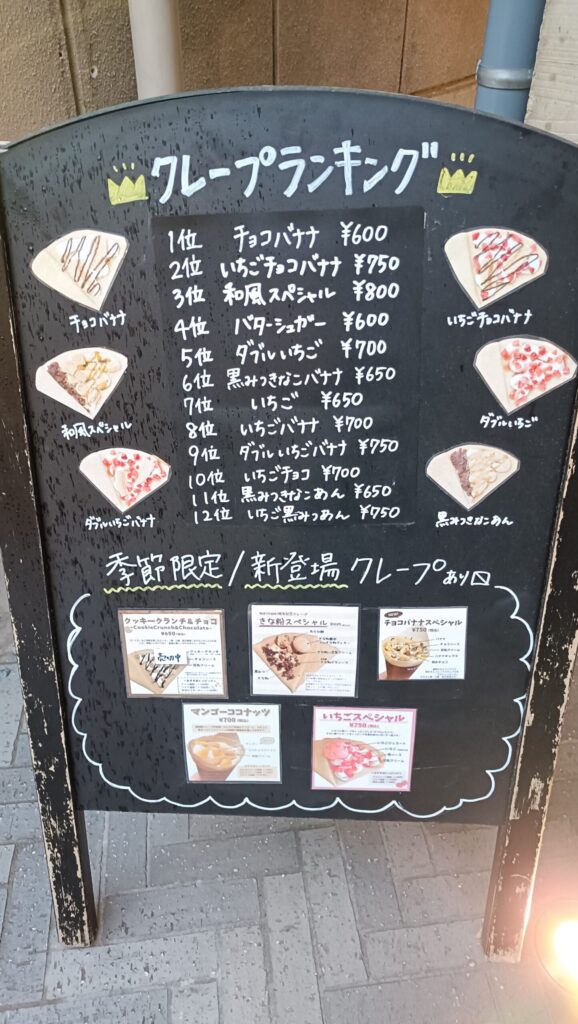 クレープランキング
1位 チョコバナナ ¥600
2位 いちごチョコバナナ ¥750
3位 和風スペシャル ¥800
4位 バターシュガー ¥600
5位 ダブルいちご ¥700
6位 黒みつきなこバナナ ¥650
7位 いちご ¥650
8位 いちごバナナ ¥700
9位 ダブルいちごバナナ ¥750
10位 いちごチョコ ¥700
11位 黒みつきなこあん ¥650
12位 いちご黒みつあん ¥750
チョコバナナ
いちごチョコバナナ
和風スペシャル
ダブルいちご
ダブルいちごバナナ
黒みつきなこあん
季節限定/新登場 クレープあり〼
クッキークランチ&チョコ
-CookieCrunch&Chocolate-
¥650(税込)
売切中
きな粉スペシャル
チョコバナナスペシャル
¥750(税込)
マンゴーココナッツ
¥700(税込)
いちごスペシャル
¥750(税込)